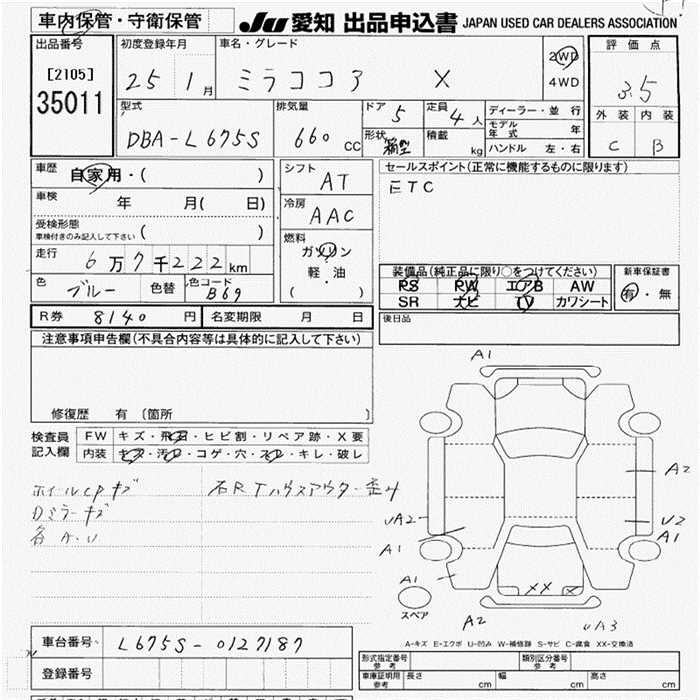 車内保管・守衛保管 JU 愛知 出品申込書 JAPAN USED CAR DEALERS ASSOCIATION
出品番号 初度登録年月 車名・グレード 2WD 評価点
[2105] 25 1月 ミラココア X 4WD 3.5
35011 型式 排気量 ドア 5 定員 4人 ディーラー・並行 外装 内装
DBA-L675S 660 CC 形状 箱型 積載 kg モデル年式 年 C B
ハンドル 左・右
車歴 自家用・( ) シフト AT セールスポイント(正常に機能するものに限ります)
車検 年 月( 日) 冷房 AAC ETC
受検形態
車検付きのみ記入して下さい ( ) 燃料
走行 6万7千222km ガソリン
軽・油
( )
色 ブルー 色替 色コード B69
装備品(純正品に限り○をつけてください) 新車保証書
PS PW エアB AW 有・無
SR ナビ TV カワシート
R券 8140円 名変期限 月 日 後日品
注意事項申告欄(不具合内容等は具体的に記入して下さい)
修復歴 有 [箇所 ]
検査員 FW キズ・飛石・ヒビ割・リペア跡・X要
記入欄 内装 キズ・汚れ・コゲ・穴・スレ・キレ・破レ
ホイールCPキズ 右RTハウスアウター歪み
Dミラーキズ
各A.U
A1
A2
A2
U2
A1
A1
A1
XX
スペア
A2
A3
A-キズ E-エクボ U-凹み W-補修跡 S-サビ C-腐食 XX-交換済
車台番号 L675S-0127187
登録番号
形式指定番号 参考 類別区分番号 参考
車庫証明用 参考 長さ cm 幅 cm 高さ cm